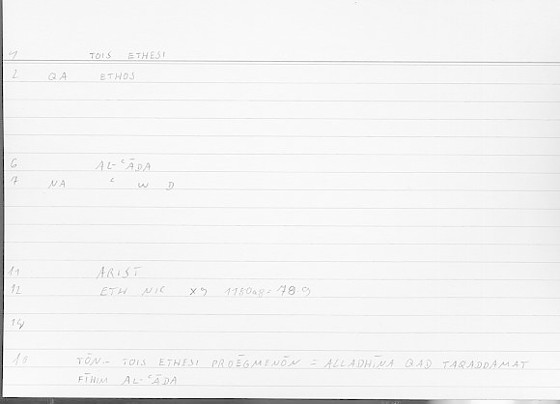 1 TOIS ETHESI
2 QA ETHOS
6 AL-ʿĀDA
7 NA ʿ W D
11 ARIST
12 ETH NIC X9 1180a8 = 78.9
14
18 TŌN.. TOIS ETHESI PROĒGMENŌN = ALLADHĪNA QAD TAQADDAMAT
FĪHIM AL-ʿĀDA